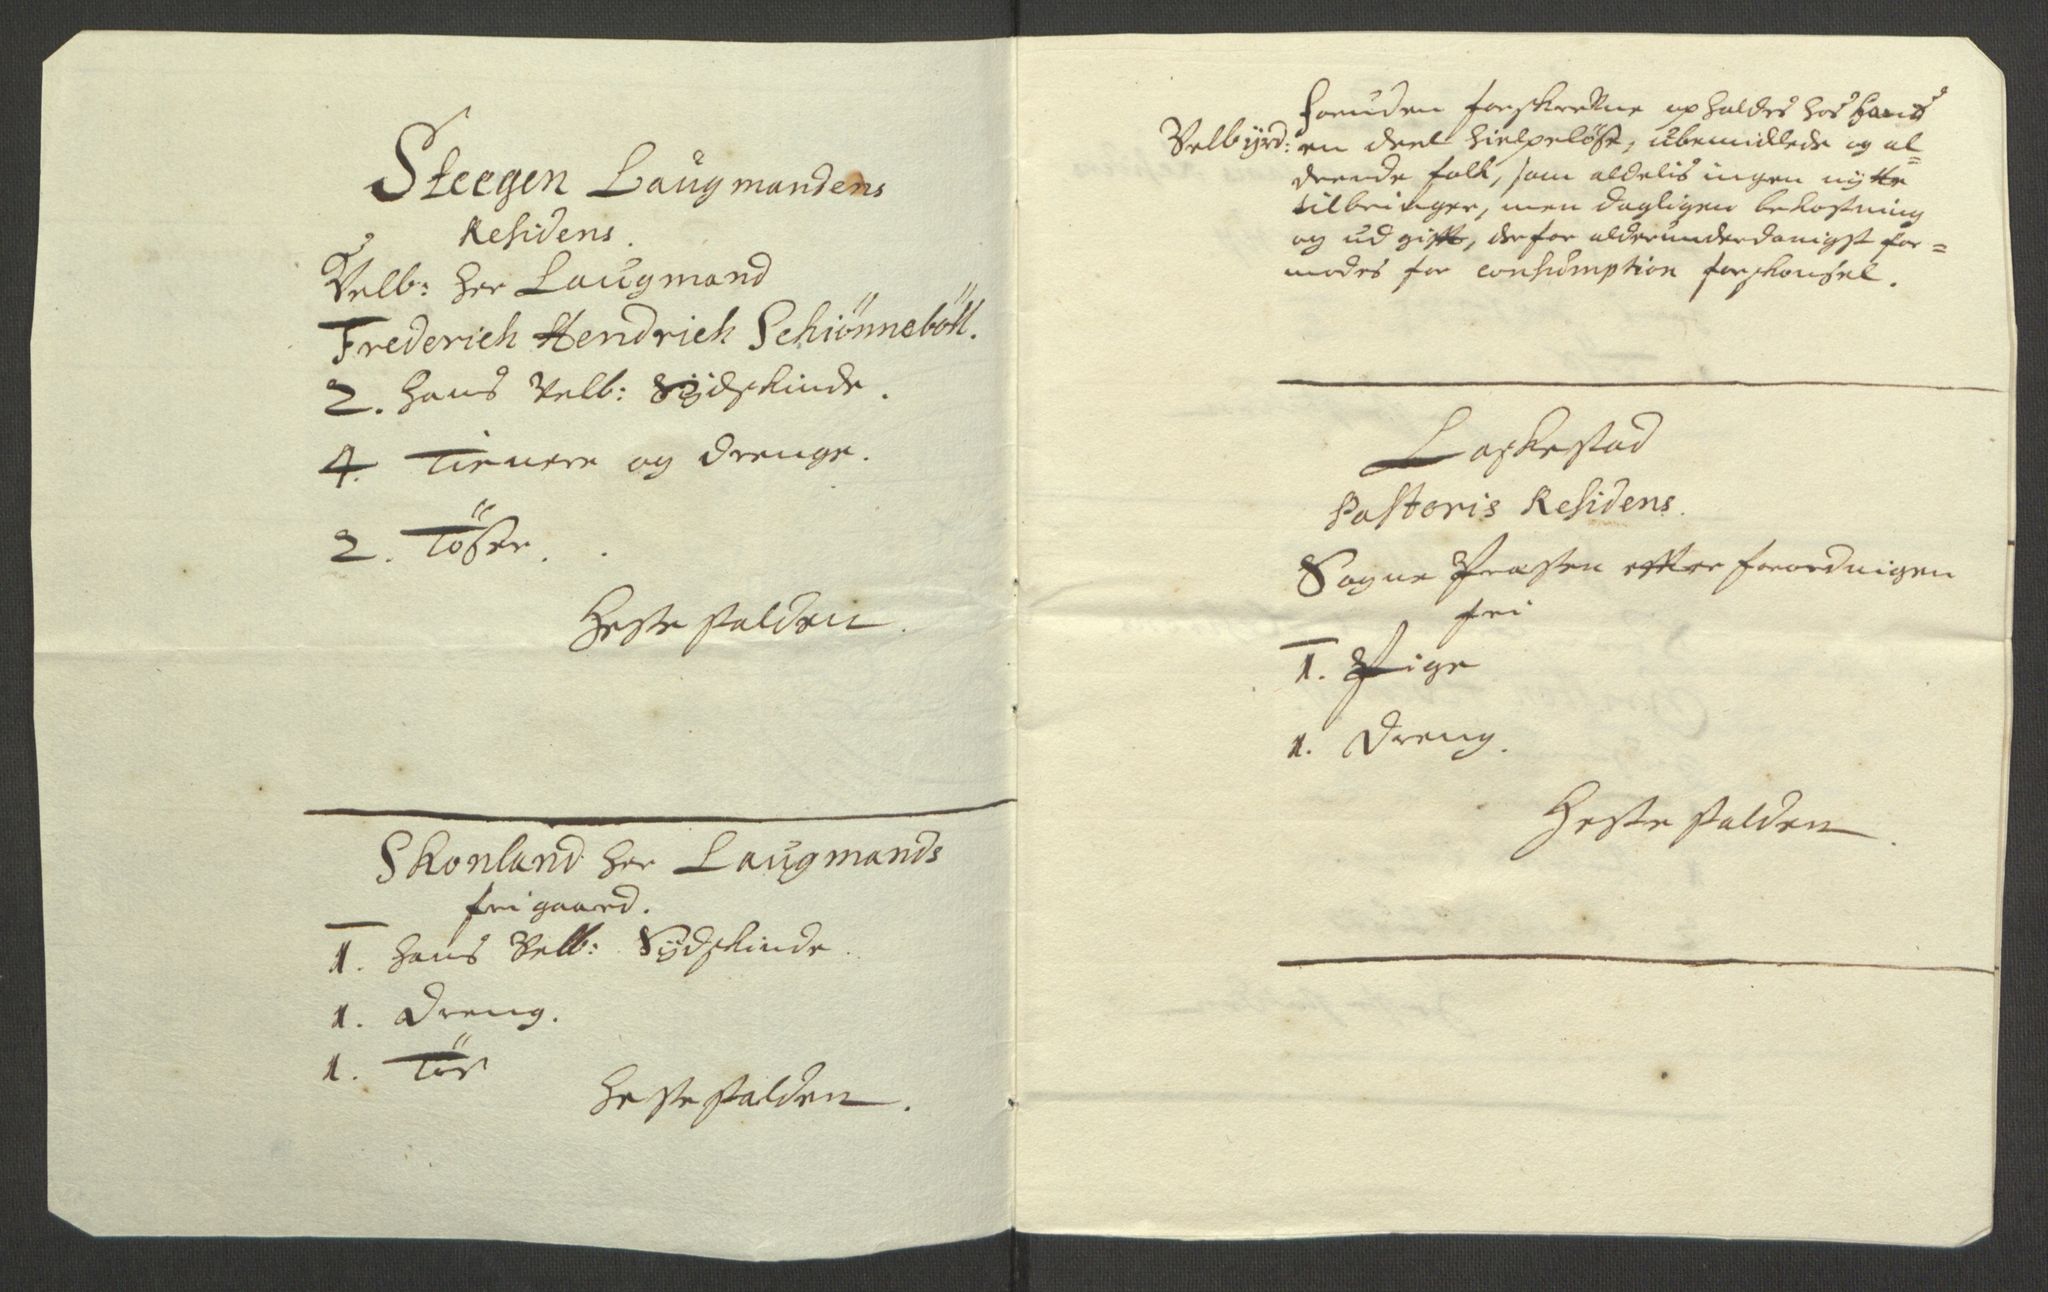 Steegen Laugmandens
Residens.
Velb: her Laugmand
Frederich Hendrich Schiönneböll.
2. hans Velb: Sÿdskinde.
4. Tienere og drenge.
2. Töser.
Hestestalden.
Skonland her Laugmands
frigaard.
1. hans Velb: Sÿdskinde.
1. Dreng.
1. Tös
Hestestalden.
Foruden forskrefne opholdes hos hans
Velbÿrd: en deel hielpelöse, ubemidlede og al-
drende folk, som aldelis ingen nÿtte
tilbringer, men dagligen bekostning
og udgifft, derfor alderunderdanigst for=
modes for consumption forskonsel.
Laskestad
Pastoris Residens.
Sogne Præsten effter forordnigen
fri
1. Pige
1. Dreng.
Hestestalden.